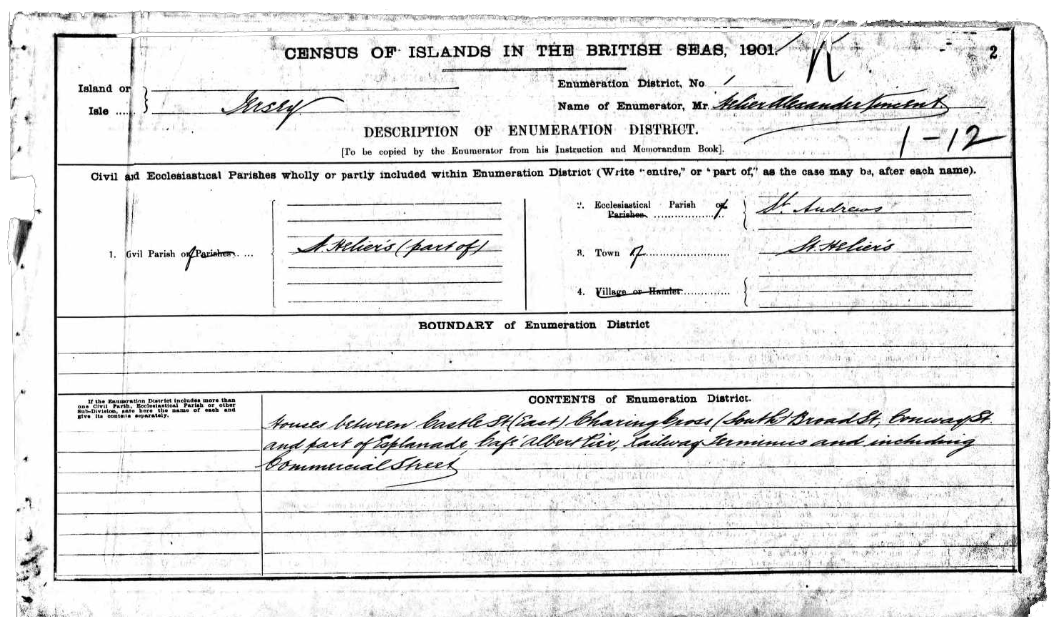 CENSUS OF ISLANDS IN THE BRITISH SEAS, 1901.
2
Island or Isle ..... } Jersey
Enumeration District, No 1
Name of Enumerator, Mr. Helier Alexander Vincent
DESCRIPTION OF ENUMERATION DISTRICT.
1-12
[To be copied by the Enumerator from his Instruction and Memorandum Book].
Civil and Ecclesiastical Parishes wholly or partly included within Enumeration District (Write "entire," or "part of," as the case may be, after each name).
1. Civil Parish of Parishes..... St. Helier's (part of)
2. Ecclesiastical Parish or Parishes ................... St. Andrews
3. Town of ..................... St. Helier's
4. Village or Hamlet..............
BOUNDARY of Enumeration District
If the Enumeration District includes more than
one Civil Parish, Ecclesiastical Parish or other
Sub-Division, state here the name of each and
give its contents separately.
CONTENTS of Enumeration District.
Houses between Castle St (East) Charing Cross (South) Broad St, Conway St.
and part of Esplanade, Albert Pier, Railway Terminus and including
Commercial Street